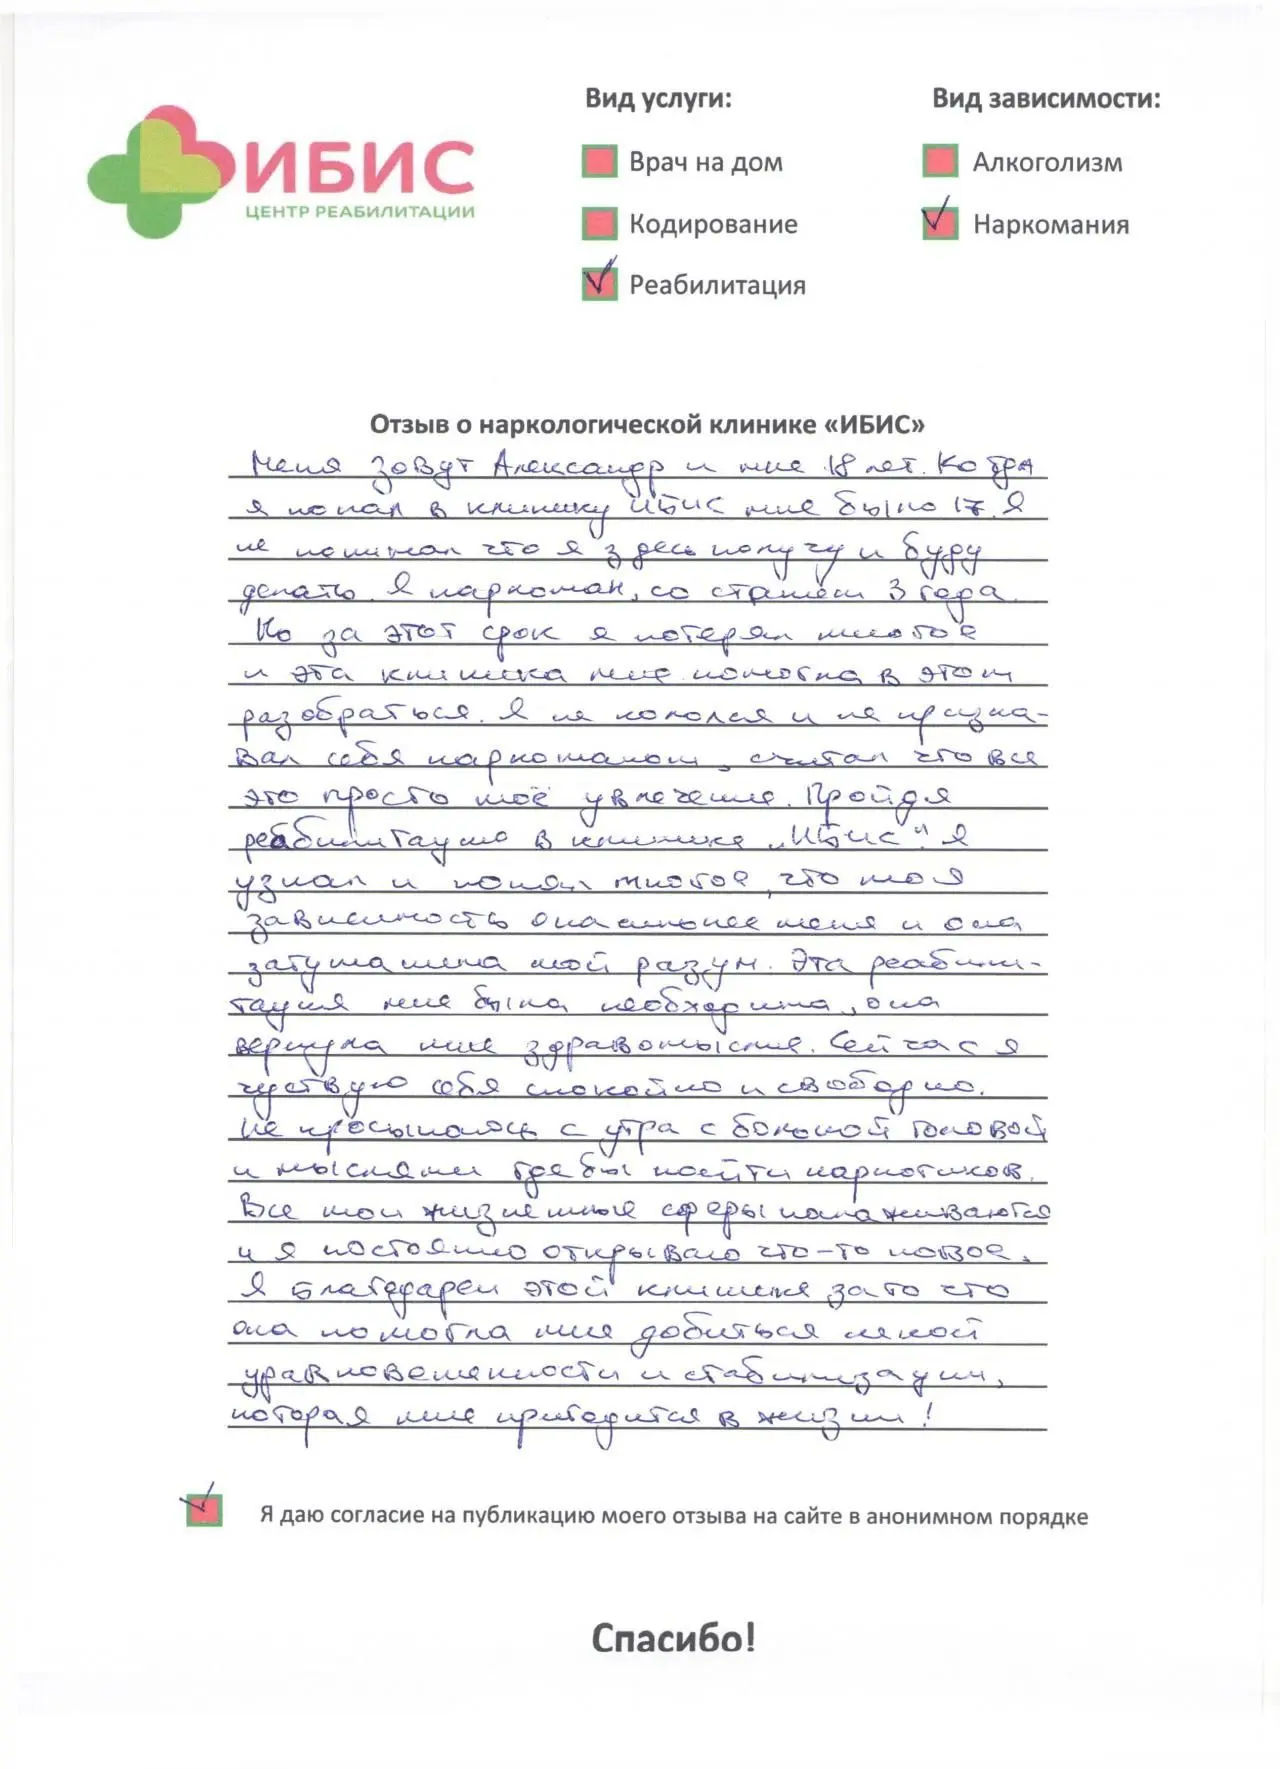 Вид услуги:
Вид зависимости:
ИБИС
ЦЕНТР РЕАБИЛИТАЦИИ
Врач на дом
Алкоголизм
Кодирование
Наркомания
Реабилитация
Отзыв о наркологической клинике «ИБИС»
Меня зовут Александр и мне 18 лет. Когда
я попал в клинику ИБИС мне было 17. Я
не понимал что я здесь получу и буду
делать. Я наркоман, со стажем 3 года.
Но за этот срок я потерял многое
и эта клиника мне помогла в этом
разобраться. Я не кололся и не призна-
вал себя наркоманом, считал что все
это просто моё увлечение. Пройдя
реабилитацию в клинике „ИБИС". Я
узнал и понял многое, что моя
зависимость она сильнее меня и она
затуманила мой разум. Эта реабили-
тация мне была необходима, она
вернула мне здравомыслие. Сейчас я
чуствую себя спокойно и свободно.
Не просыпаюсь с утра с больной головой
и мыслями где бы найти наркотиков.
Все мои жизненные сферы налаживаются
и я постоянно открываю что-то новое.
Я благодарен этой клинике за то что
она помогла мне добиться некой
уравновешенности и стабилизации,
которая мне пригодится в жизни!
Я даю согласие на публикацию моего отзыва на сайте в анонимном порядке
Спасибо!